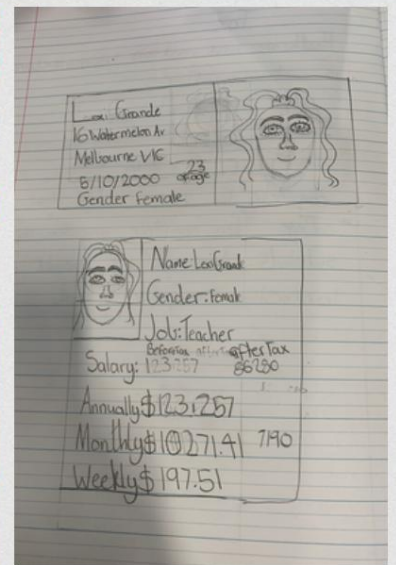 Grande
16 Watermelon Av
Melbourne VIC
5/10/2000 23 of age
Gender Female
Name: Grande
Gender: Female
Job: Teacher
Before tax after tax
Salary: 123,257 86290
Annually $123,257
Monthly $10271.41 7190
Weekly $197.51